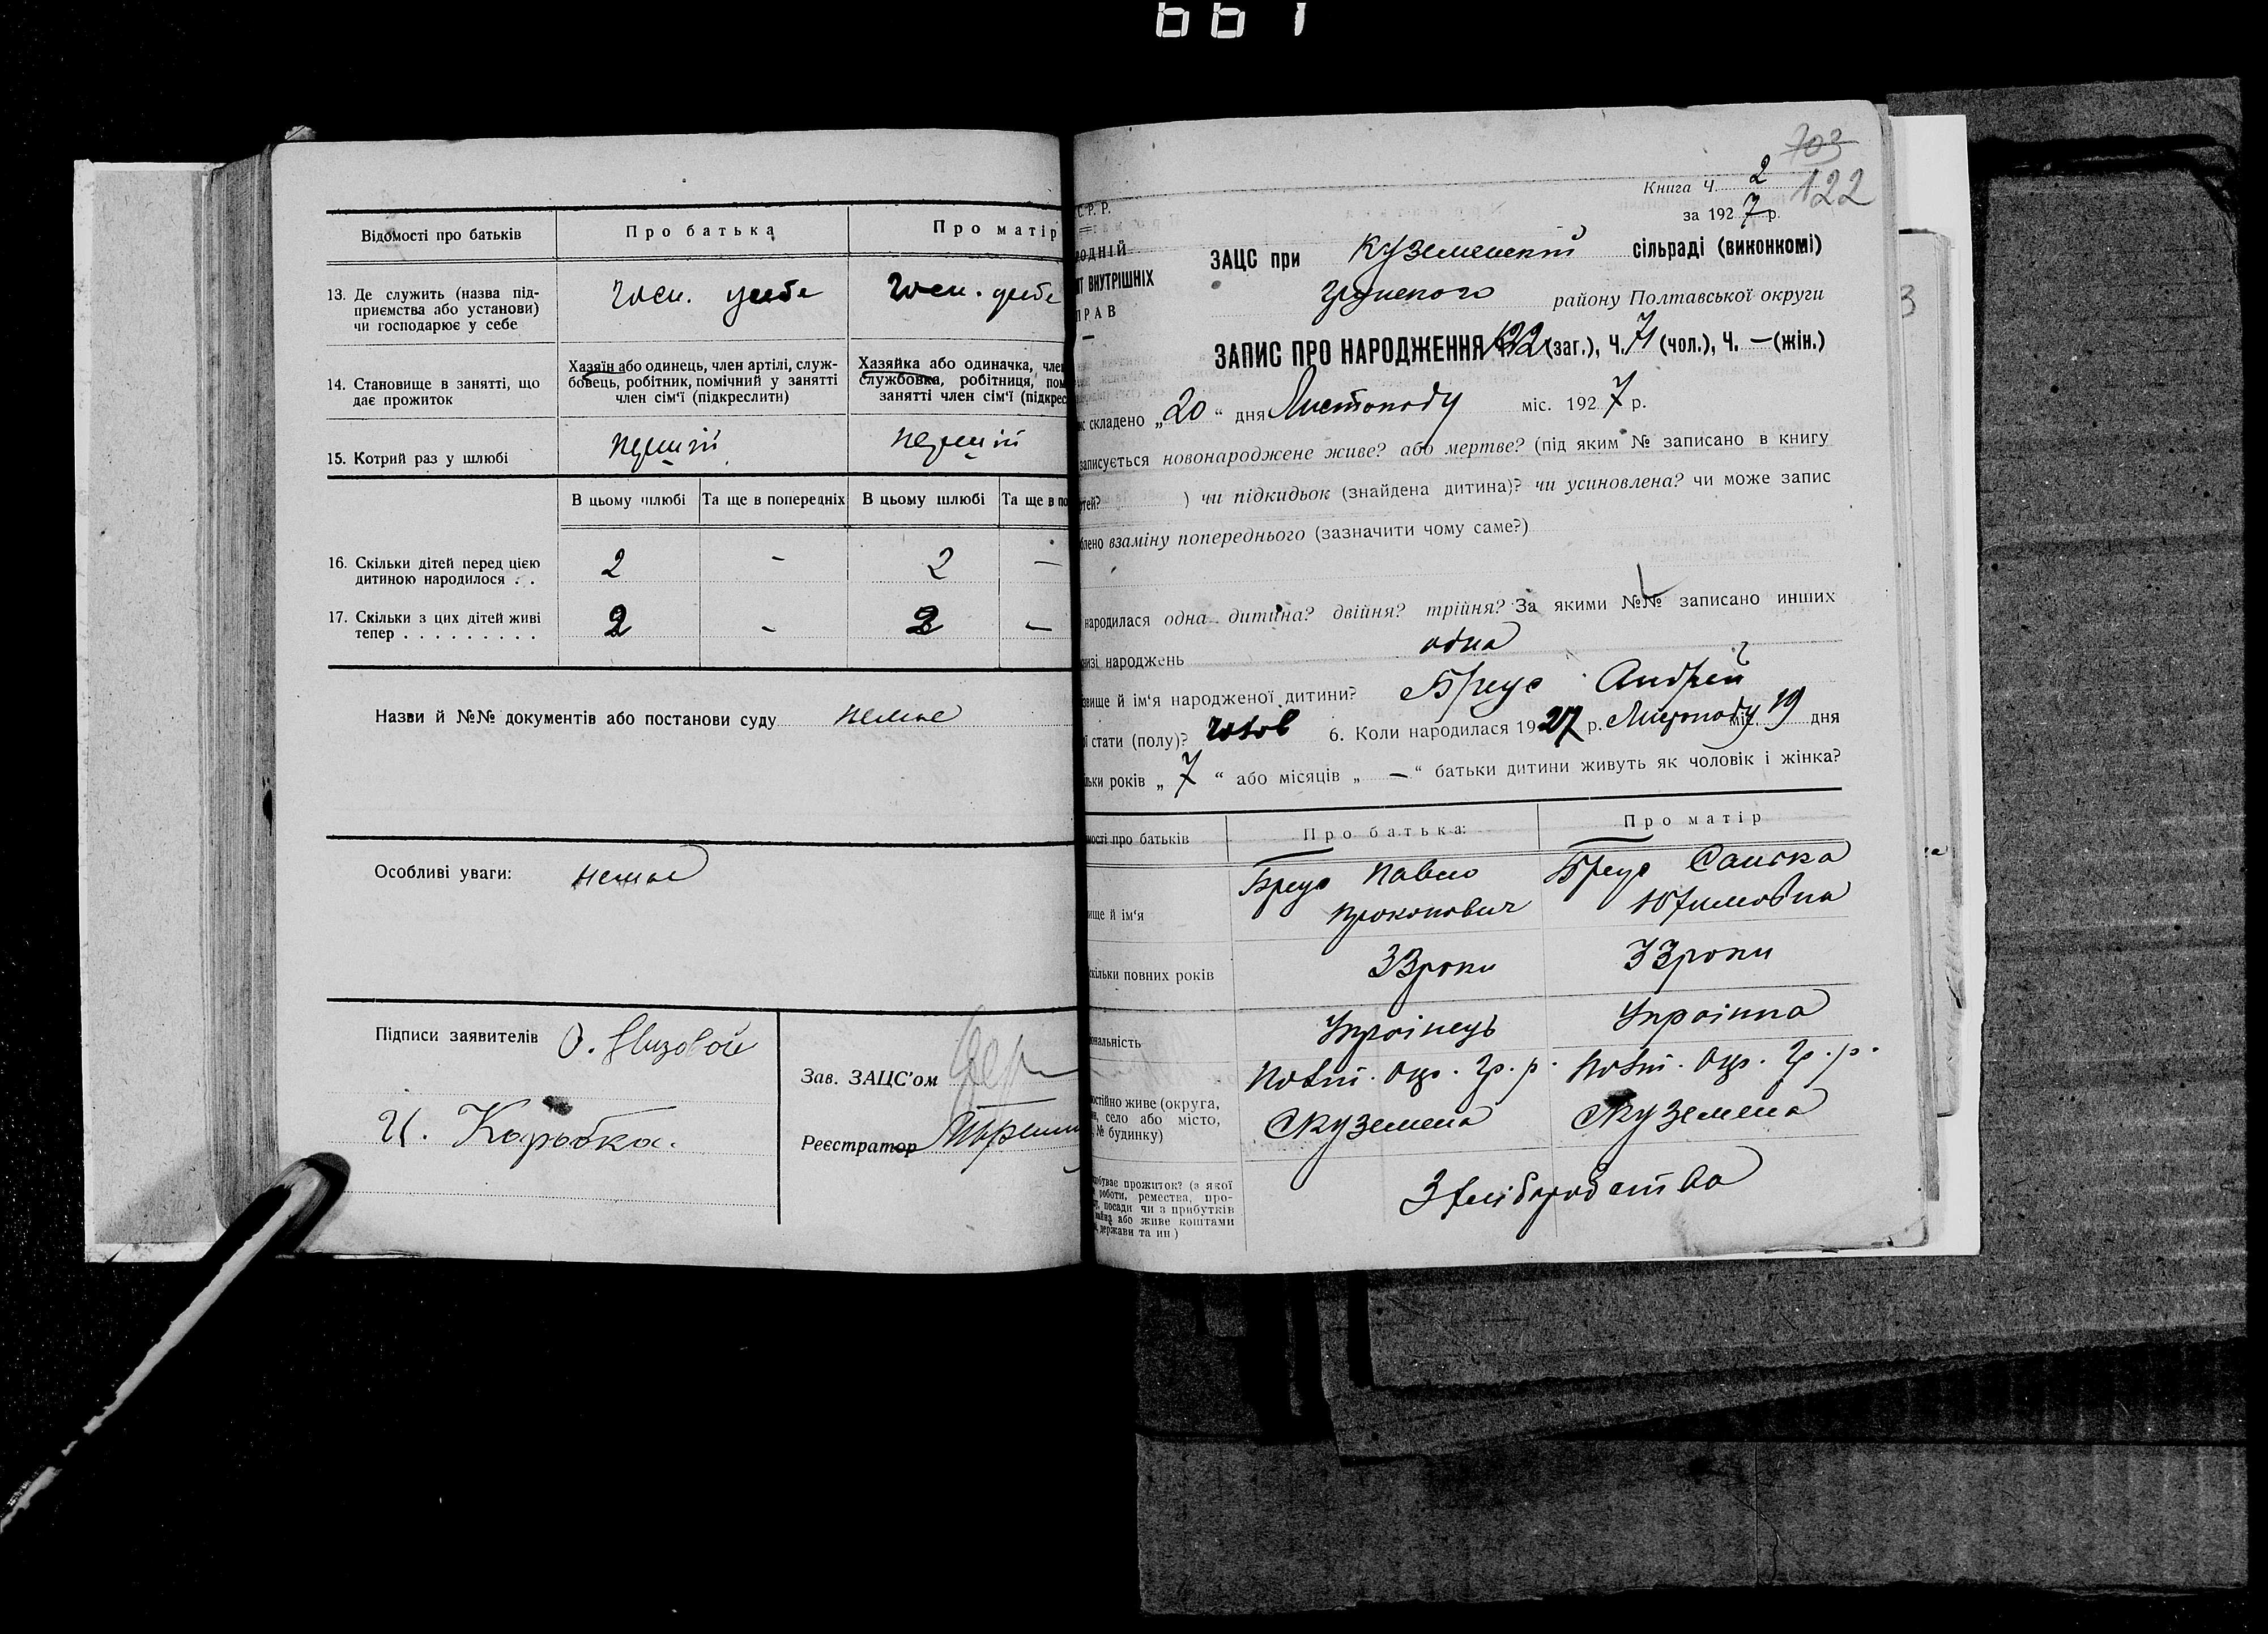 661
Відомості про батьків
Про батька
Про матір
13. Де служить (назва під-
приємства або установи)
чи господарює у себе
Госп. у себе
Госп. у себе
14. Становище в занятті, що
дає прожиток
Хазяїн або одинець, член артілі, служ-
бовець, робітник, помічний у занятті
член сім'ї (підкреслити)
Хазяйка або одиначка, член
службовка, робітниця, пом
занятті член сім'ї (підкрес
15. Котрий раз у шлюбі
перший
перший
В цьому шлюбі
Та ще в попередніх
В цьому шлюбі
Та ще в по
16. Скільки дітей перед цією
дитиною народилося . .
2 - 2 -
17. Скільки з цих дітей живі
тепер . . . . . . . . .
2 - 2 -
Назви й №№ документів або постанови суду немає
Особливі уваги: немає
Підписи заявителів
И. Коробка.
Зав. ЗАЦС'ом
Реєстратор
703
122
Книга Ч. 2
за 1927 р.
С. Р. Р.
РОДНІЙ
Т ВНУТРІШНІХ
ПРАВ
ЗАЦС при Куземенскій сільраді (виконкомі)
Грунского району Полтавської округи
ЗАПИС ПРО НАРОДЖЕННЯ Ч. 122 (заг.), Ч. 71 (чол.), Ч. — (жін.)
с складено „20“ дня Листопаду міс. 1927 р.
записується новонароджене живе? або мертве? (під яким № записано в книгу
ртей? ) чи підкидьок (знайдена дитина)? чи усиновлена? чи може запис
блено взаміну попереднього (зазначити чому саме?)
народилася одна дитина? двійня? трійня? За якими №№ записано инших
низі народжень одна
звище й ім'я народженої дитини? Бреус Андрей
ї стати (полу)? чолов 6. Коли народилася 1927 р. Листопаду міс. 19 дня
льки років „7“ або місяців „—“ батьки дитини живуть як чоловік і жінка?
мості про батьків
Про батька:
Про матір
вище й ім'я
Бреус Павло
Прокопович
Бреус Санька
Юхимовна
скільки повних років
33 роки
33 роки
ональність
Українець
Українка
остійно живе (округа,
н, село або місто,
№ будинку)
Полт. окр. Гр. р.
С Куземена
Полт. окр. Гр. р.
С Куземена
добуває прожиток? (з якої
роботи, ремества, про-
, посади чи з прибутків
майна або живе коштами
, держави та ин)
З хліборобства